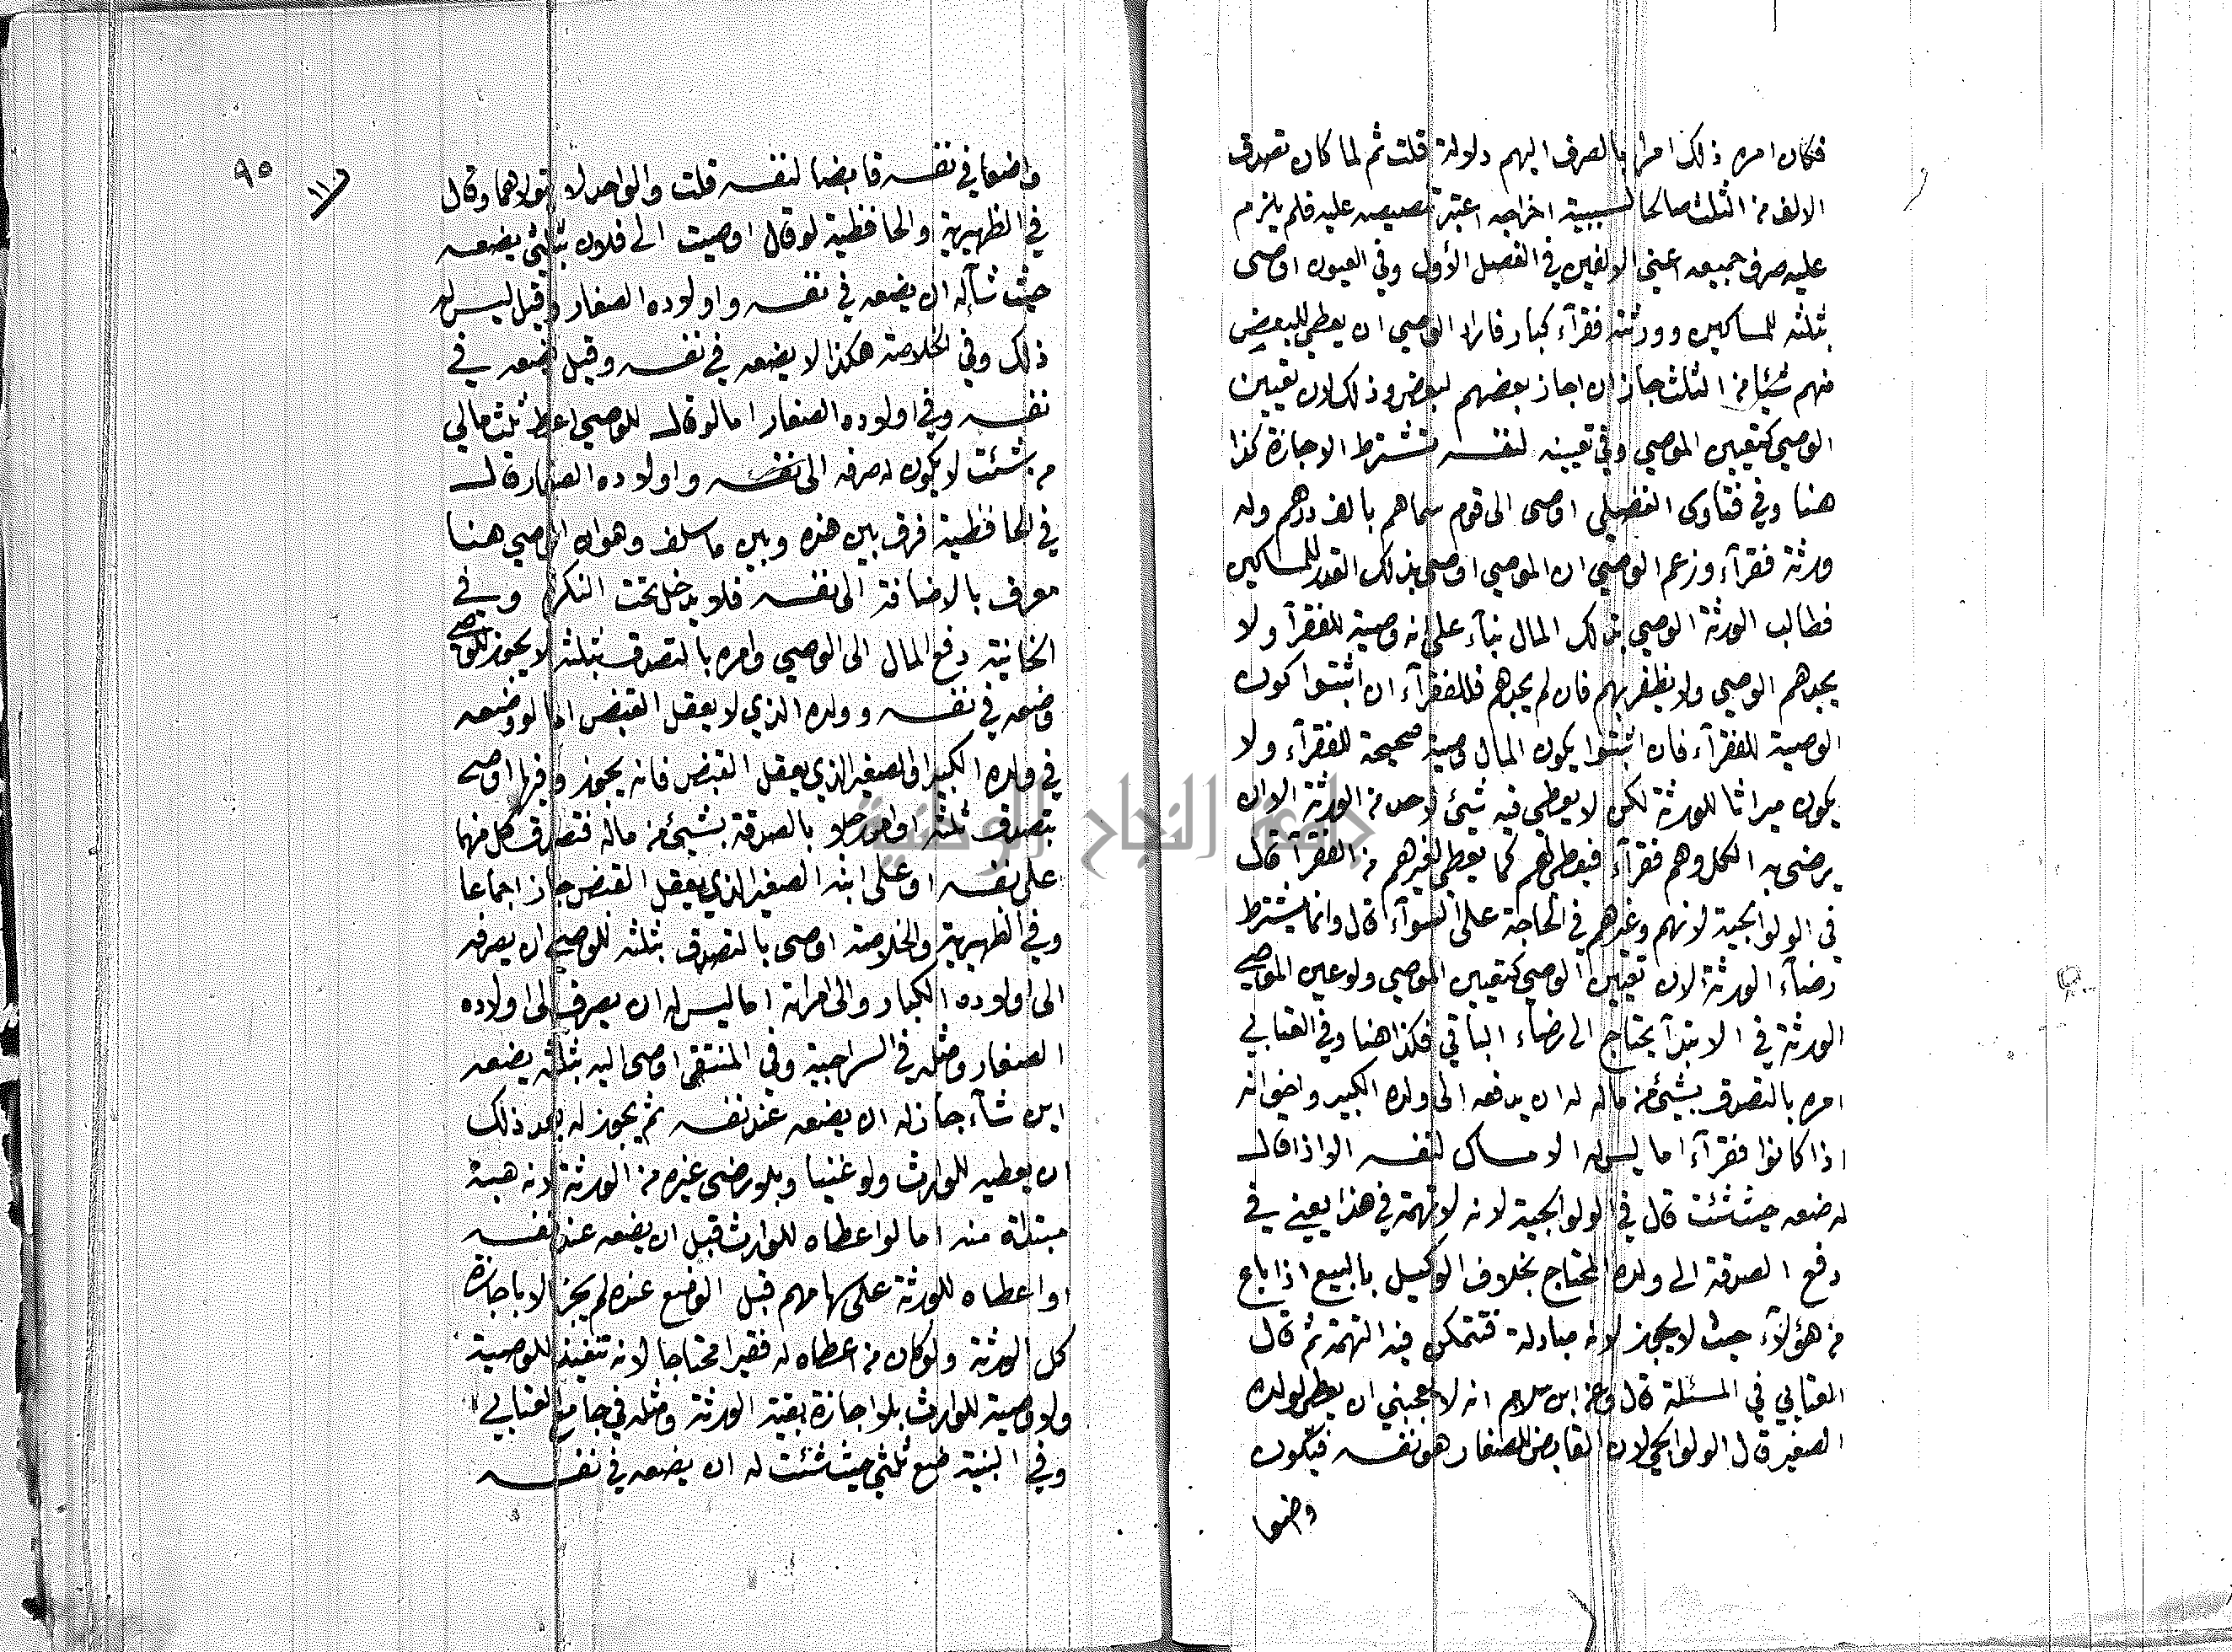 فكان امره ذلك امرا بالصرف اليهم دلولة قلت ثم لما كان تصدق
الالف من الثلث صالحا لسببية اخراجه اعتبر تنصيصه عليه فلم يلزم
عليه صرف جميعه اعني الالفين في الفصل الأول وفي العيون اوصى
بثلثه للمساكين وورثته فقرآء كبار فاراد الوصي ان يعطي للبعض
منهم شيئا من الثلث جاز ان اجاز بعضهم لبعض وذلك لان تعيين
الوصي كتعيين الموصي وفي تعيينه لنفسه تشترط الاجازة كذا
هنا وفي فتاوى الفضيلي اوصى الى قوم سماهم بالف درهم وله
ورثة فقرآء وزعم الوصي ان الموصي اوصى بذلك القدر للمساكين
فطالب الورثة الوصي بذلك المال بنآء على انه وصية للفقرآء ولا
يجدهم الوصي ولا يظفر بهم فان لم يجدهم فللفقرآء ان اثبتوا كون
الوصية للفقرآء فان اثبتوا يكون المال وصية صحيحة للفقرآء ولا
يكون ميراثا للورثة لكن لا يعطي فيه شيئ لاحد من الورثة الا ان
يرضى به الكل وهم فقرآء فيعطى لهم كما يعطي لغيرهم من الفقرآء قال
في الولوالجية لانهم وغيرهم في الحاجة على السوآء قال وانما يشترط
رضآء الورثة لان تعيين الوصي كتعيين الموصي ولو عين الموصي
الورثة في الابتدآ يحتاج الى رضاء الباقي فكذا هنا وفي العتابي
امره بالتصدق بشيئ من ماله له ان يدفعه الى ولده الكبير واخوانه
اذا كانوا فقرآء اما ليس له الامساك لنفسه الا اذا قال
له ضعه حيث شئت قال في الولوالجية لانه لا تهمة في هذا يعني في
دفع الصدقة الى ولده المحتاج بخلاف الوكيل بالبيع اذا باع
من هؤلآء حيث لا يجوز لانه مبادلة فتتمكن فيه التهمة ثم قال
العتابي في المسئلة قال وعن ابن سلام انه لا يعجبني ان يعطي لولده
الصغير قال الولوالجي لان القابض للصغار هو نفسه فيكون
واضعا
٩٥
واضعا في نفسه قابضا لنفسه قلت والواحد لا يتولاهما وقال
في الظهيرية والحافظية لو قال اوصيت الى فلان بثلثي يضعه
حيث شآء له ان يضعه في نفسه واولاده الصغار وقيل ليس له
ذلك وفي الخلاصة هكذا لا يضعه في نفسه وقيل يضعه في
نفسه وفي اولاده الصغار اما لو قال للوصي اعط ثلث مالي
من شئت لا يكون له صرفه الى نفسه واولاده الصغار قال
في الحافظية فرق بين هذه وبين ما سلف وهو ان الوصي هنا
معرف بالاضافة الى نفسه فلا يدخل تحت النكرة وفي
الخانية دفع المال الى الوصي وامره بالتصدق بثلثه لا يجوز للوصي
وضعه في نفسه وولده الذي لا يعقل القبض اما لو وضعه
في ولده الكبير او الصغير الذي يعقل القبض فانه يجوز وفيها اوصى
بتصدق ثلثه او امر رجلا بالصدقة بشيئ من ماله فتصدق كل منهما
على نفسه او على ابنه الصغير الذي يعقل القبض جاز اجماعا
وفي الظهيرية والخلاصة اوصى بالتصدق بثلثه للوصي ان يصرفه
الى اولاده الكبار والى امراته اما ليس له ان يصرف الى اولاده
الصغار ومثله في السراجية وفي المنتقى اوصى اليه بثلثه يضعه
اين شآء جاز له ان يضعه عند نفسه ثم يجوز له بعد ذلك
ان يعطيه للوارث ولو غنيا وبلا رضى غيره من الورثة لانه هبة
مبتدأة منه اما لو اعطاه للوارث قبل ان يضعه عند نفسه
او اعطاه للورثة على سهامهم قبل الوضع عنده لم يجز الا باجازة
كل الورثة ولو كان من اعطاه له فقيرا محتاجا لانه تنفيذ للوصية
ولا وصية للوارث بلا اجازة بقية الورثة ومثله في جامع العتابي
وفي البنية ضع ثلثي حيث شئت له ان يضعه في نفسه
جامعة النجاح الوطنية